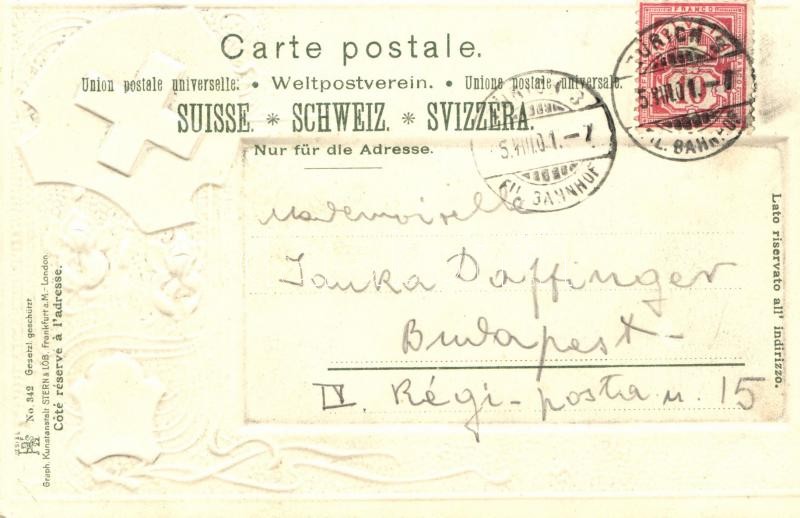 Carte postale.
Union postale universelle. • Weltpostverein. • Unione postale universale.
SUISSE. * SCHWEIZ. * SVIZZERA.
Nur für die Adresse.
FRANCO
10
ZÜRICH
5.VIII.01.-7
FIL. BAHNHOF
5.VIII.01.-7
FIL. BAHNHOF
Mademoiselle
Janka Daffinger
Budapest
IV. Régi-posta u. 15
Lato riservato all' indirizzo.
Côté réservé à l'adresse.
No. 342 Gesetzl. geschützt
Graph. Kunstanstalt STERN & LÖB, Frankfurt a. M.-London.